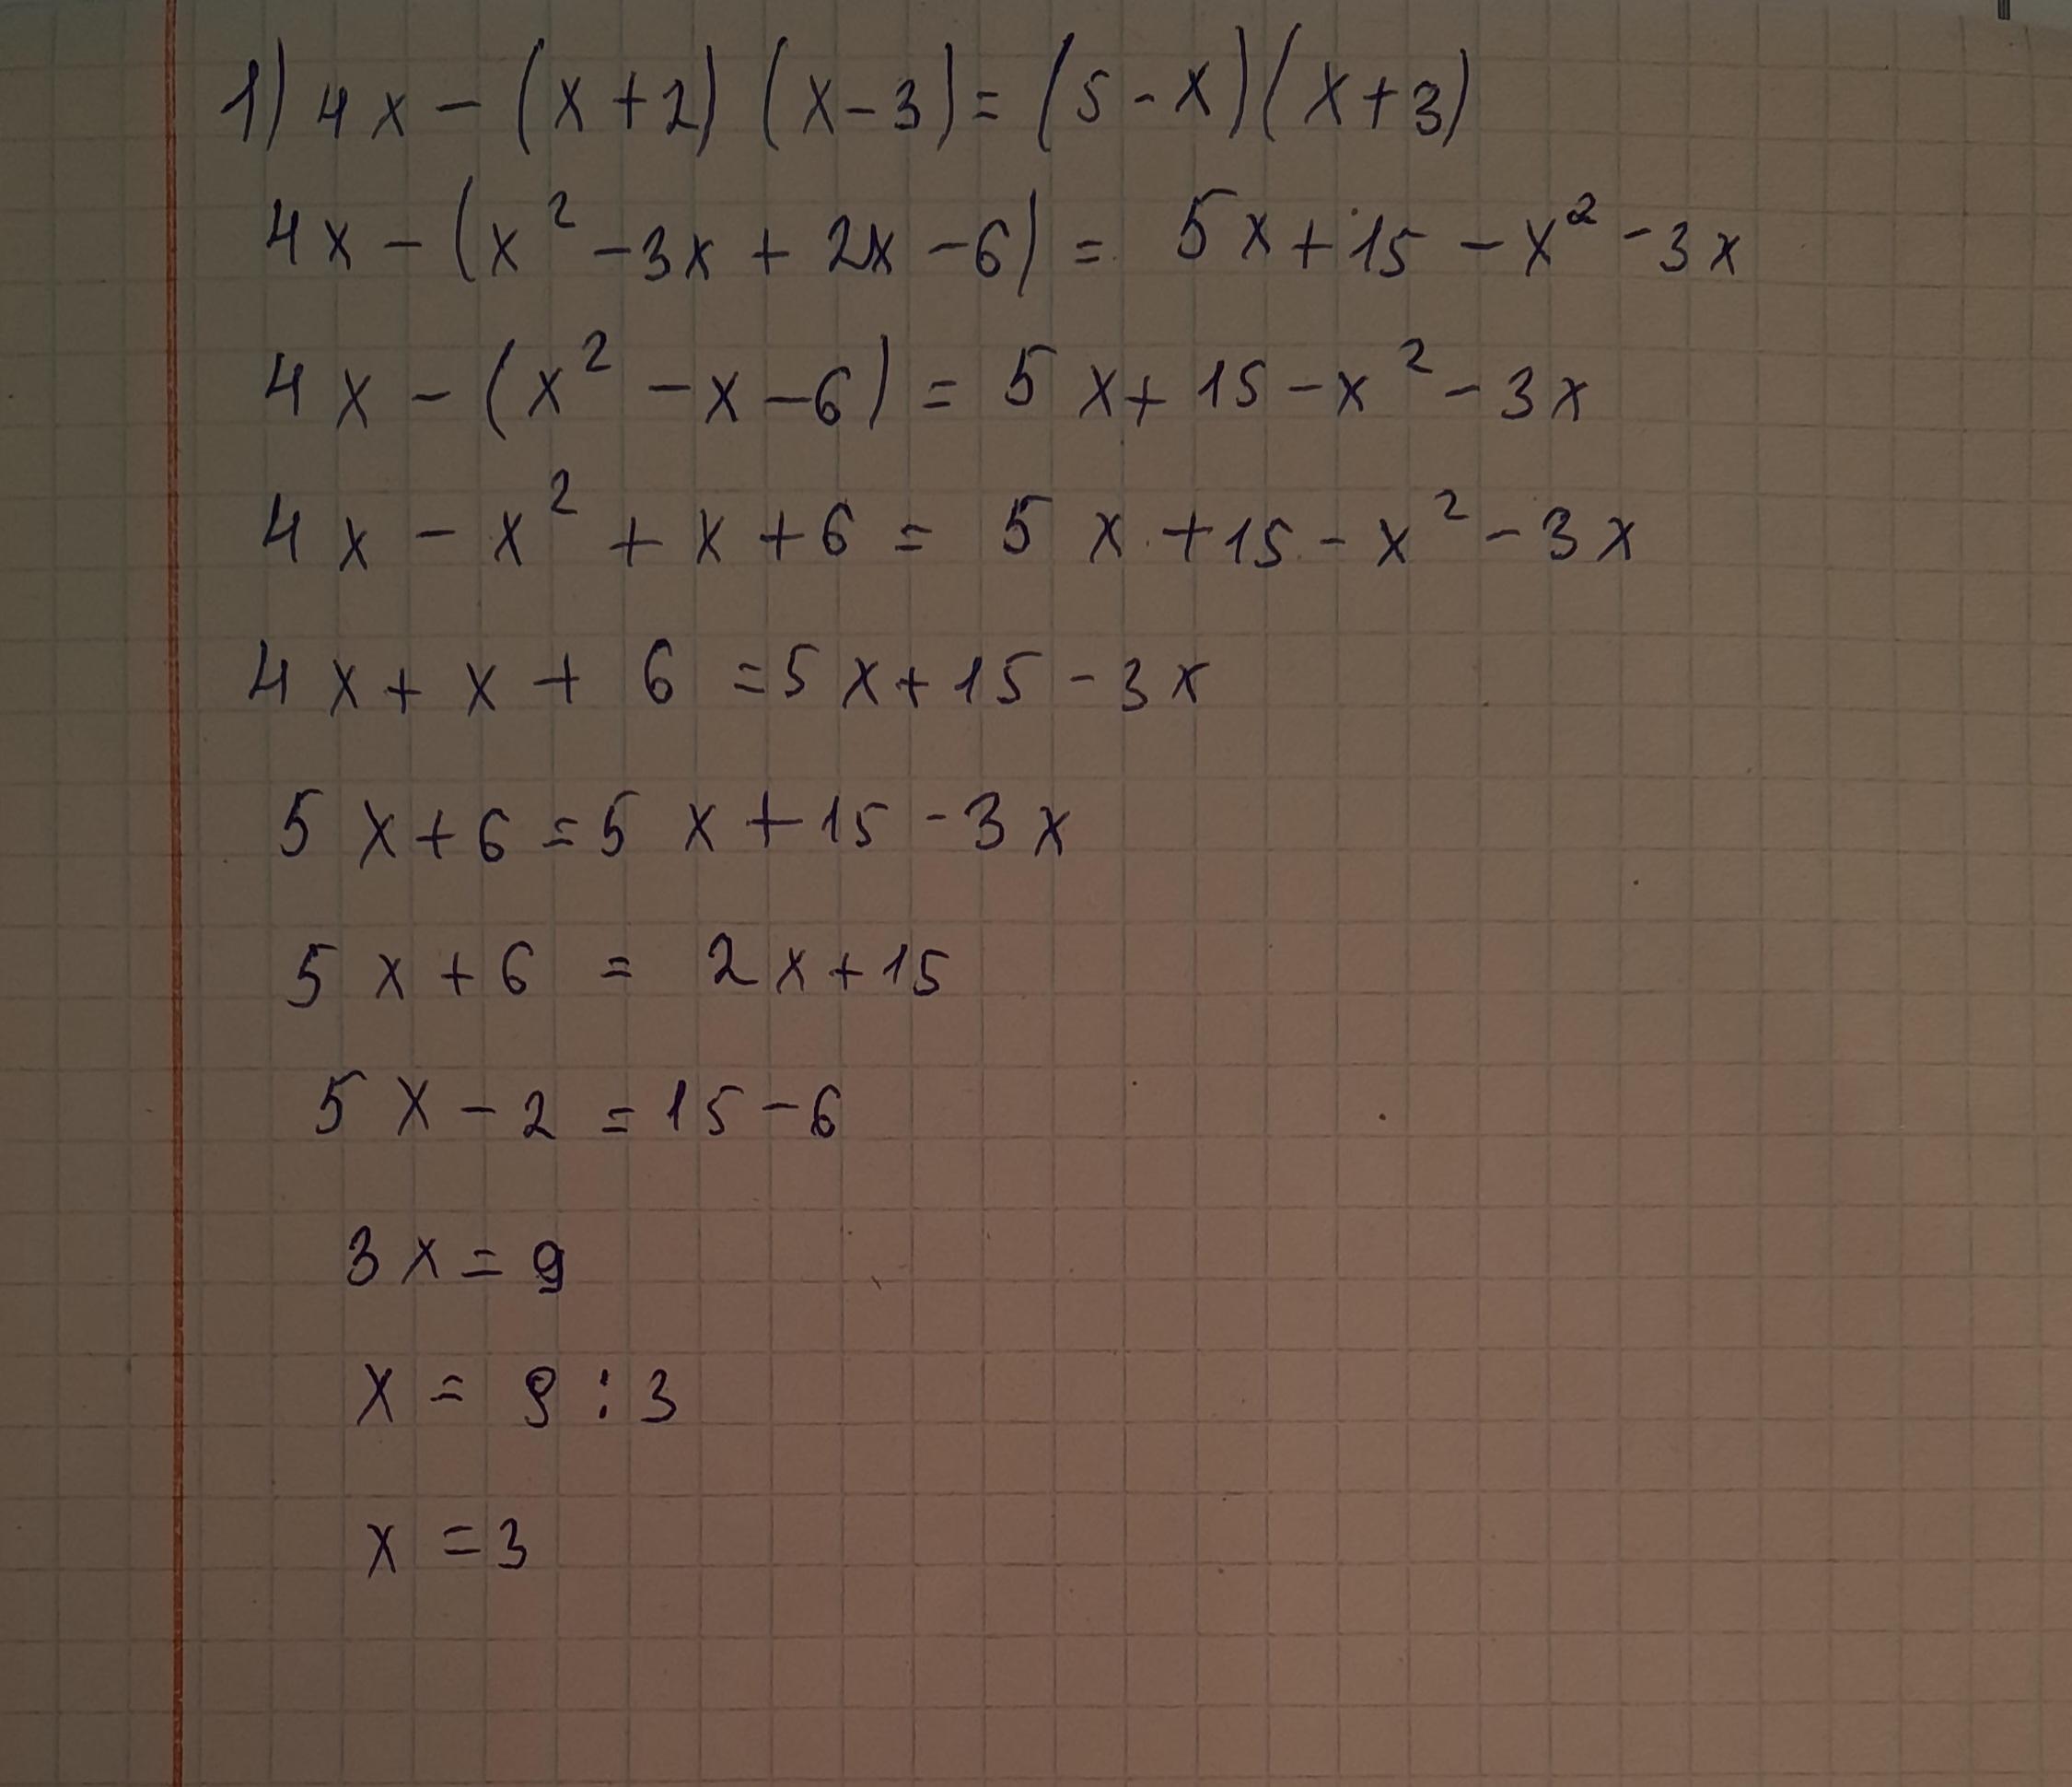 1) 4x - (x+2) (x-3) = (5-x)(x+3)
4x - (x² - 3x + 2x - 6) = 5x + 15 - x² - 3x
4x - (x² - x - 6) = 5x + 15 - x² - 3x
4x - x² + x + 6 = 5x + 15 - x² - 3x
4x + x + 6 = 5x + 15 - 3x
5x + 6 = 5x + 15 - 3x
5x + 6 = 2x + 15
5x - 2 = 15 - 6
3x = 9
x = 9 : 3
x = 3